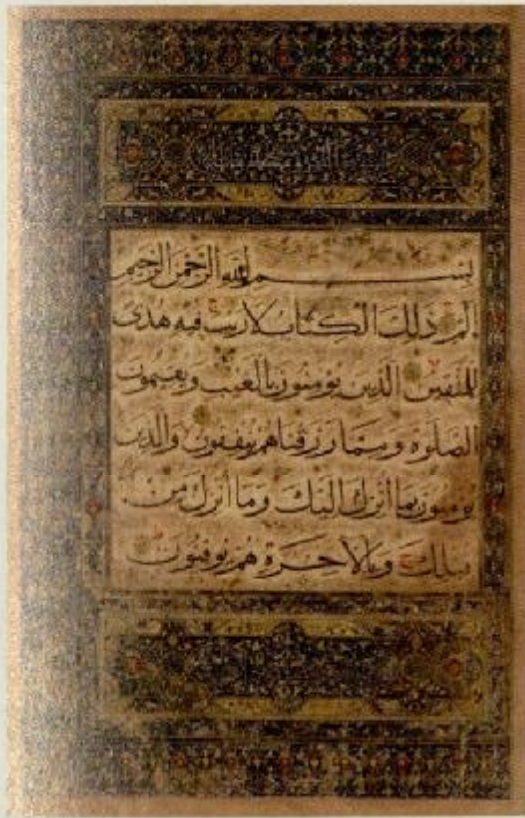 بسم الله الرحمن الرحيم
الم ذلك الكتاب لا ريب فيه هدى
للمتقين الذين يؤمنون بالغيب ويقيمون
الصلوة ومما رزقناهم ينفقون والذين
يؤمنون بما أنزل اليك وما أنزل من
قبلك وبالآخرة هم يوقنون